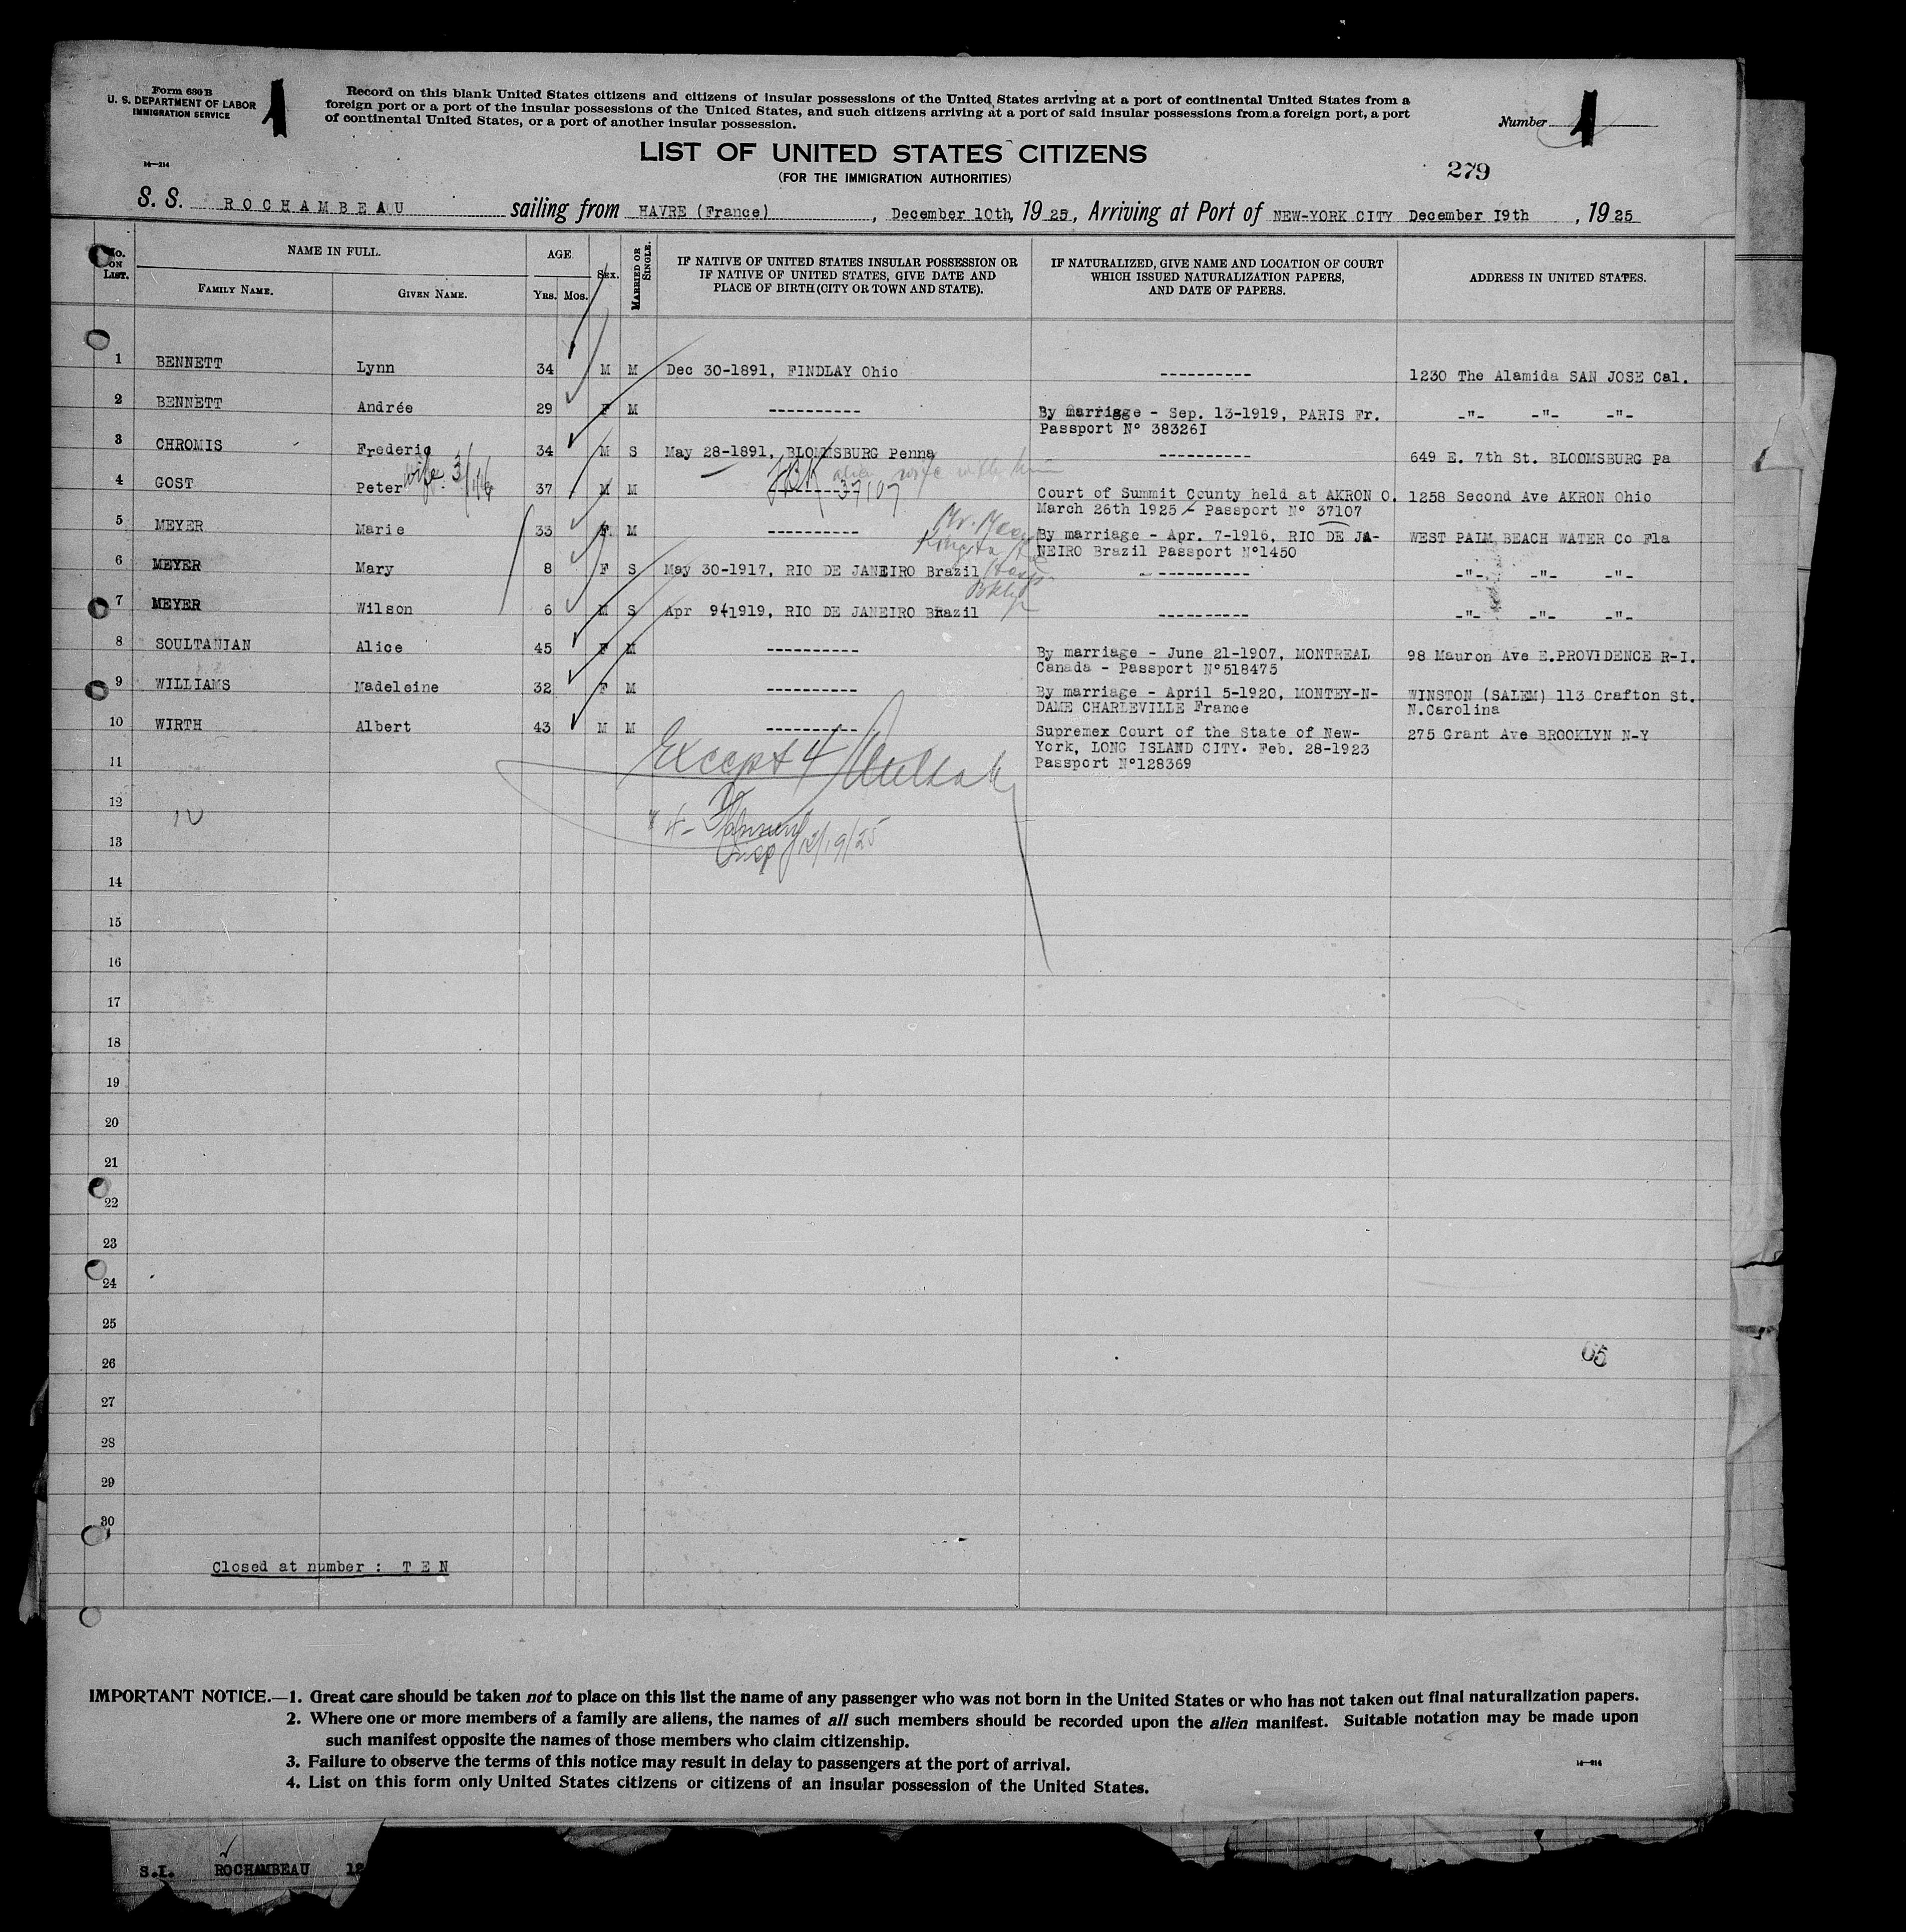 Form 630 B
U. S. DEPARTMENT OF LABOR
IMMIGRATION SERVICE
1
Record on this blank United States citizens and citizens of insular possessions of the United States arriving at a port of continental United States from a
foreign port or a port of the insular possessions of the United States, and such citizens arriving at a port of said insular possessions from a foreign port, a port
of continental United States, or a port of another insular possession.
Number 1
14—214
LIST OF UNITED STATES CITIZENS
(FOR THE IMMIGRATION AUTHORITIES)
279
S. S. ROCHAMBEAU sailing from HAVRE (France), December 10th, 1925, Arriving at Port of NEW-YORK CITY December 19th, 1925
No. ON LIST.
NAME IN FULL.
FAMILY NAME.
GIVEN NAME.
AGE.
Yrs. Mos.
SEX.
MARRIED OR SINGLE.
IF NATIVE OF UNITED STATES INSULAR POSSESSION OR
IF NATIVE OF UNITED STATES, GIVE DATE AND
PLACE OF BIRTH (CITY OR TOWN AND STATE).
IF NATURALIZED, GIVE NAME AND LOCATION OF COURT
WHICH ISSUED NATURALIZATION PAPERS,
AND DATE OF PAPERS.
ADDRESS IN UNITED STATES.
1 BENNETT Lynn 34 M M Dec 30-1891, FINDLAY Ohio ---------- 1230 The Alamida SAN JOSE Cal.
2 BENNETT Andrée 29 F M ---------- By marriage - Sep. 13-1919, PARIS Fr. -"- -"- -"-
Passport N° 38326I
3 CHROMIS Frederic 34 M S May 28-1891, BLOMMSBURG Penna ---------- 649 E. 7th St. BLOOMSBURG Pa
wife 3/1/16
alien wife with him
4 GOST Peter 37 M M 37107 Court of Summit County held at AKRON O. 1258 Second Ave AKRON Ohio
March 26th 1925 - Passport N° 37107
5 MEYER Marie 33 F M ---------- By marriage - Apr. 7-1916, RIO DE JA- WEST PALM BEACH WATER Co Fla
NEIRO Brazil Passport N°1450
6 MEYER Mary 8 F S May 30-1917, RIO DE JANEIRO Brazil ---------- -"- -"- -"-
7 MEYER Wilson 6 M S Apr 9-1919, RIO DE JANEIRO Brazil ---------- -"- -"- -"-
8 SOULTANIAN Alice 45 F M ---------- By marriage - June 21-1907, MONTREAL 98 Mauron Ave E.PROVIDENCE R-I.
Canada - Passport N°518475
9 WILLIAMS Madeleine 32 F M ---------- By marriage - April 5-1920, MONTEY-N- WINSTON (SALEM) 113 Crafton St.
DAME CHARLEVILLE France N.Carolina
10 WIRTH Albert 43 M M ---------- Supremex Court of the State of New- 275 Grant Ave BROOKLYN N-Y
York, LONG ISLAND CITY. Feb. 28-1923
Passport N°128369
Except 4
11
12
12/19/25
13
14
15
16
17
18
19
20
21
22
23
24
25
26
65
27
28
29
30
Closed at number : T E N
IMPORTANT NOTICE.—1. Great care should be taken not to place on this list the name of any passenger who was not born in the United States or who has not taken out final naturalization papers.
2. Where one or more members of a family are aliens, the names of all such members should be recorded upon the alien manifest. Suitable notation may be made upon
such manifest opposite the names of those members who claim citizenship.
3. Failure to observe the terms of this notice may result in delay to passengers at the port of arrival.
14—214
4. List on this form only United States citizens or citizens of an insular possession of the United States.
S.I. ROCHAMBEAU 12